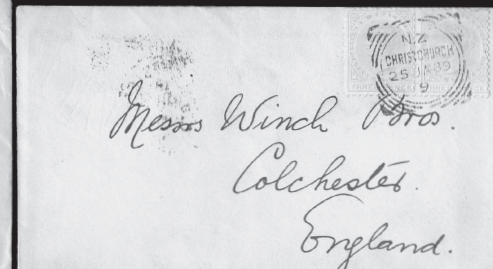 N.Z.
CHRISTCHURCH
25 JA 89
9
Messrs Winch Bros.
Colchester.
England.